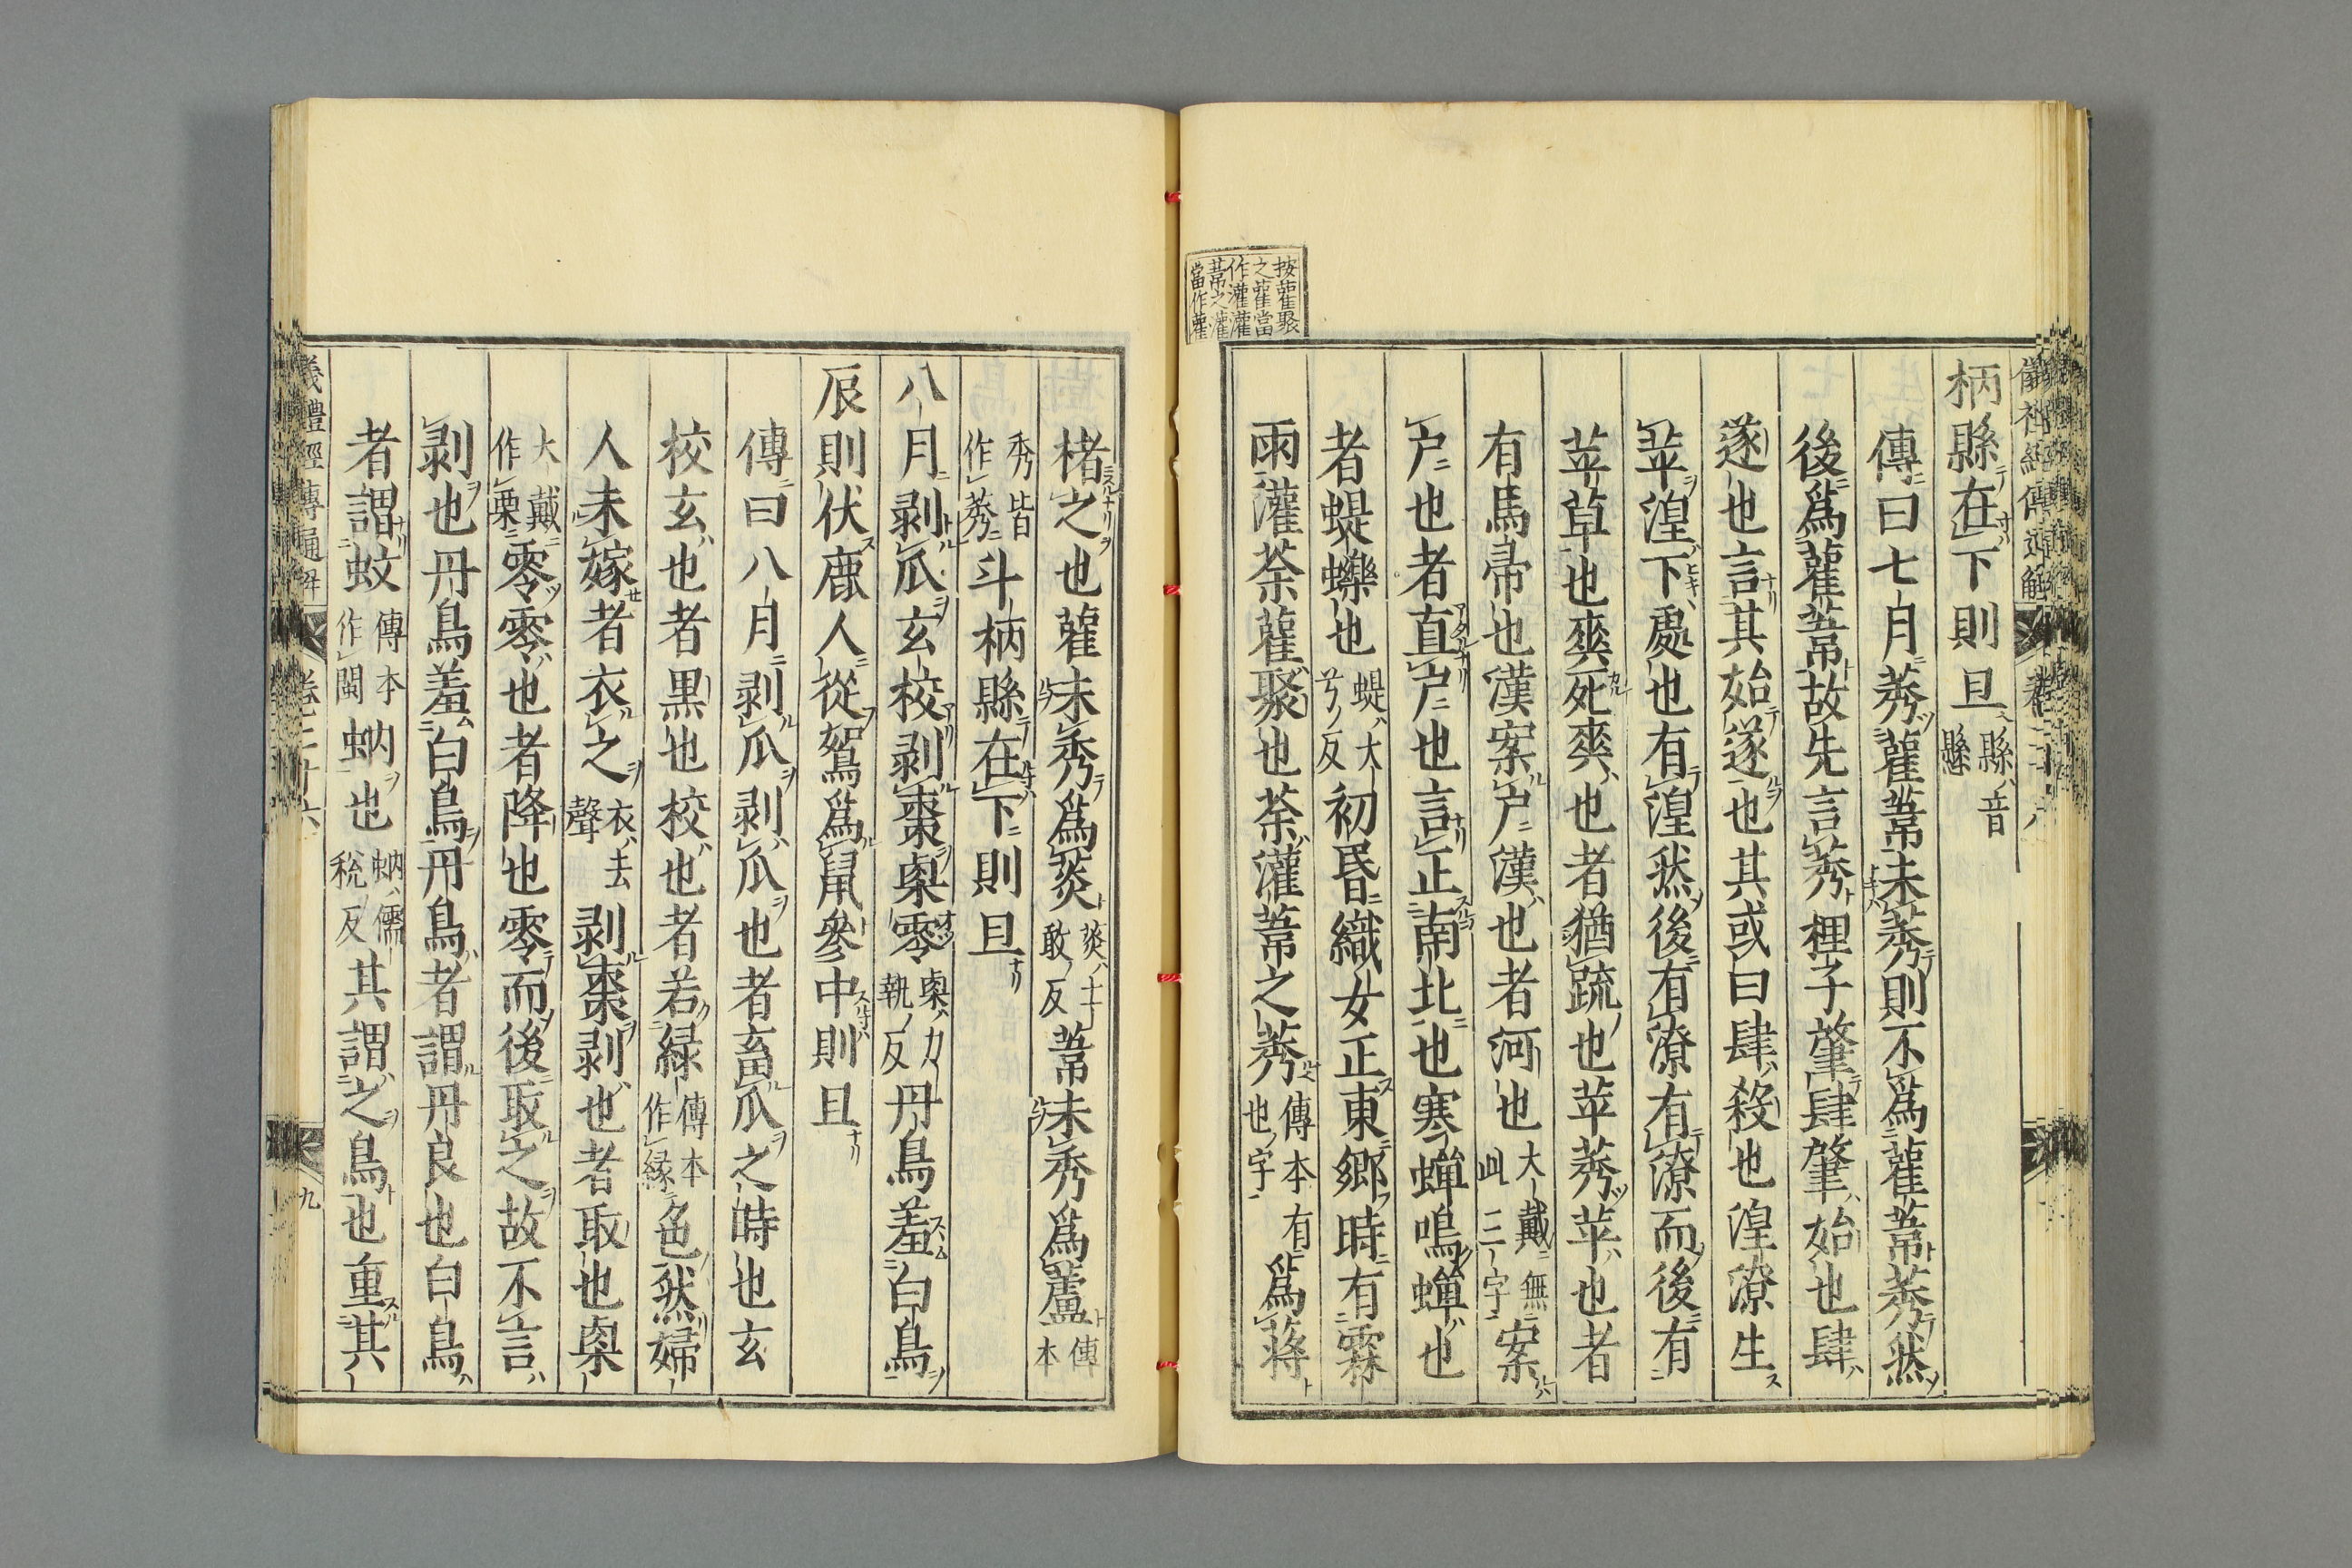 按雚聚
之雚當
作灌灌
葦之灌
當作雚
柄縣在下則旦縣音縣
傳曰七月莠雚葦未莠則不爲雚葦莠然
後爲雚葦故先言莠狸子肇肆肇始也肆
遂也言其始遂也其或曰肆殺也湟潦生
苹湟下處也有湟然後有潦有潦而後有
苹草也爽死爽也者猶疏也苹莠苹也者
有馬帚也漢案户漢也者河也大戴無此二字案
户也者直户也言正南北也寒蟬鳴蟬也
者蝭蠑也蝭大兮反初昏織女正東鄉時有霖
雨灌荼雚聚也荼灌葦之莠傳本有也字爲蔣
楮之也雚未秀爲菼菼土敢反葦未秀爲蘆傳本
秀皆作莠斗柄縣在下則旦
八月剥瓜玄校剥棗㮚零㮚力執反丹鳥羞白鳥
辰則伏鹿人從鴽爲鼠參中則旦
傳曰八月剥瓜剥瓜也者畜瓜之時也玄
校玄也者黒也校也者若緑傳本作緑色然婦
人未嫁者衣之衣去聲剥棗剥也者取也㮚
大戴作栗零零也者降也零而後取之故不言
剥也丹鳥羞白鳥丹鳥者謂丹良也白鳥
者謂蚊傳本作閩蚋也蚋儒稅反其謂之鳥也重其
義禮經傳通解 卷二十六 九